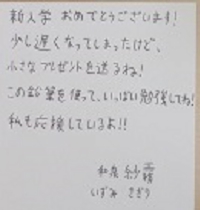 新入学 おめでとうございます!
少し遅くなってしまったけど、
小さなプレゼントを送るね!
この鉛筆を使って、いっぱい勉強してね!
私も応援しているよ!!
和泉 紗霧
いずみ さぎり